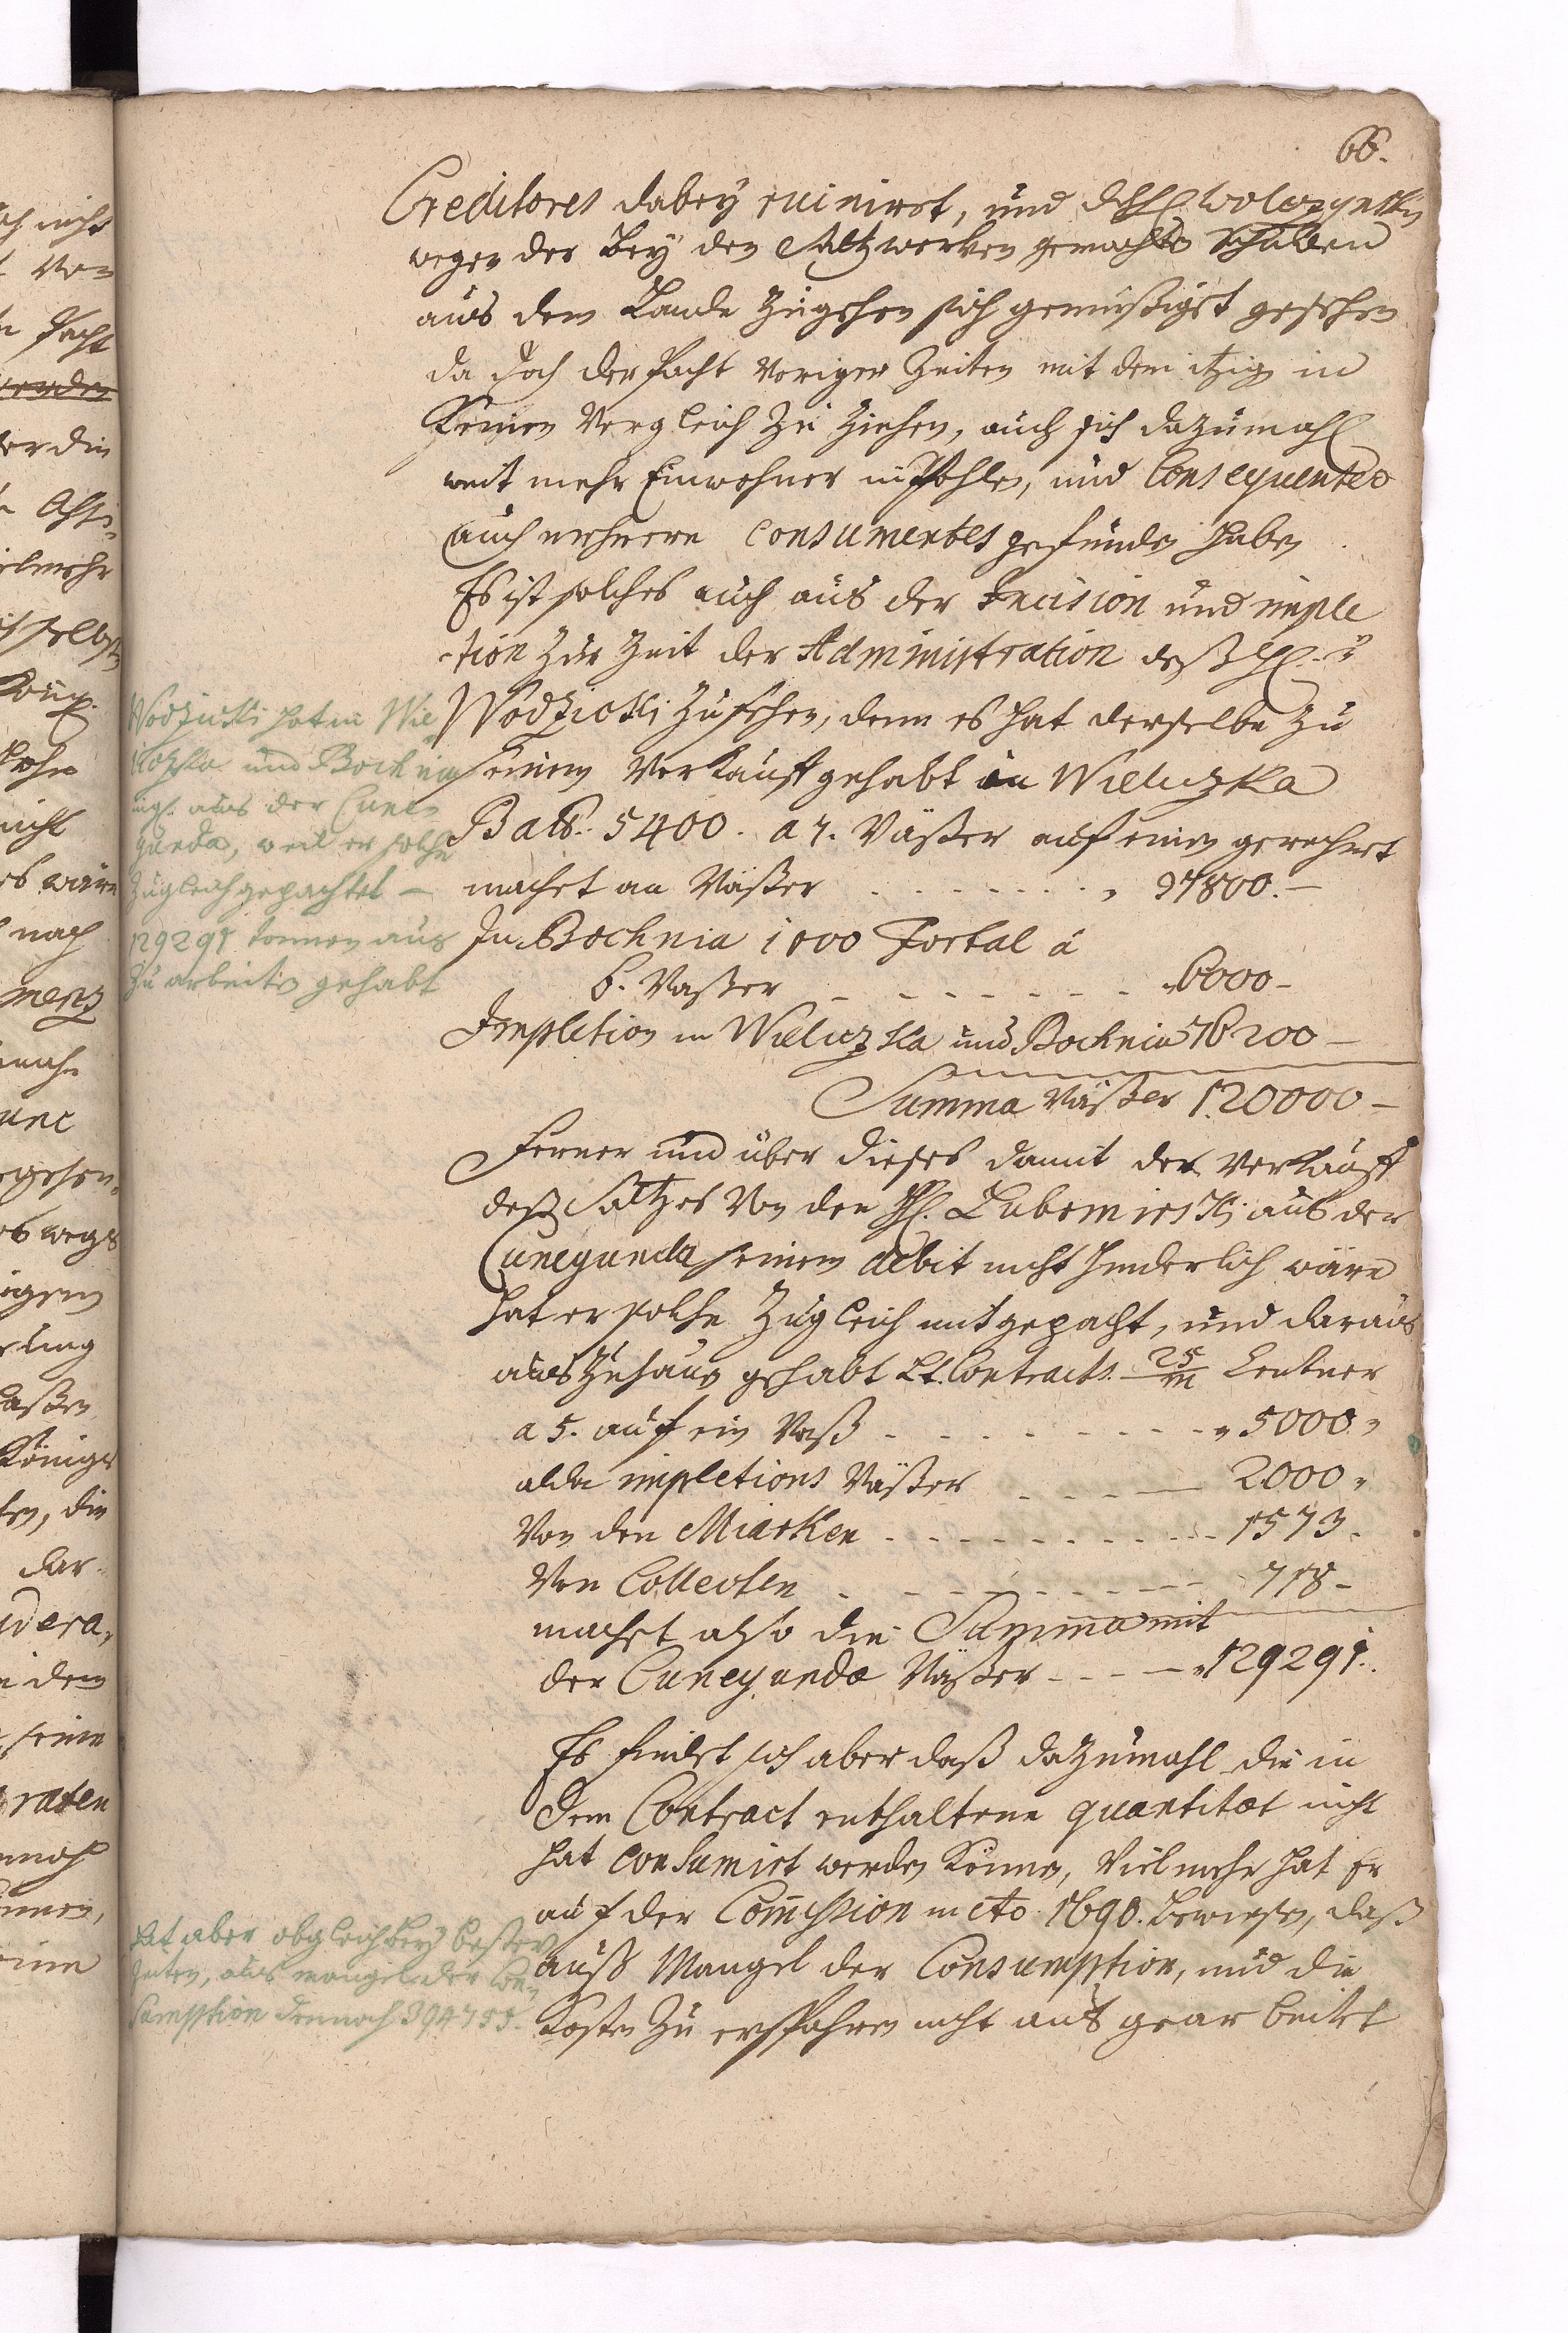 66.
Creditores dabey ruinirt, und
wegen der Bey den Saltzwerken gemachten Schulden
aus dem Lande Zugehen sich gemüßiget gesehen
da doch der Pacht voriger Zeiten mit dem itzig in
Keinen Vergleich Zu Ziehen, auch sich dazumahl
weit mehr Einwohner in Pohlen, und Consequenter
auch mehrere Consumentes gefunden haben.
Es ist solches auch aus der Incision und imple
-tion Zur Zeit der Administration deß H.
Wodzicki Zusehen, denn es hat derselbe Zu
seinem Verkauff gehabt in Wieliczka
Balv. 5400. a 7. Väßer auf einen gerechnet
machet an Väßer 37800.-
In Bochnia 1000 Fortal á
6. Vaßer 6000-
Impletion in Wieliczka und Bochnia 76200-
Summa Väßer 120000-
Ferner und über dieses damit der Verkauff
deß Saltzes Von den H. Lubomirski aus der
Cunegunda seinem debit nicht hinderlich wäre
hat er solche Zugleich mitgepacht, und daraus
auszuhauen gehabt Lt. Contracts 25/m Centner
a 5. auf ein Vaß 5000.
alda impletions Väßer 2000.
Von den Miarken 1573.
Von Collecten 718-
machet also die Summa mit
der Cunegunda Väßer 129291.
Es findet sich aber daß dazumahl die in
dem Contract enthaltene quantitæt nicht
hat Consumirt werden können, Vielmehr hat Er
auf der Com̄ission in Ao. 1690. bewiesen, daß
auß Mangel der Consumption, und die
Kosten Zu erspahren nicht ausgearbeitet
Wodzicki hat in Wie
liczka und Bochnia
ingl. aus der Cune-
gunda, weil er solche
Zugleich gepachtet -
129291 Tonnen aus
Zu arbeiten gehabt
Hat aber obgleich bey besten
Zeiten, aus mangel der Con-
Sumption dennoch 394755.